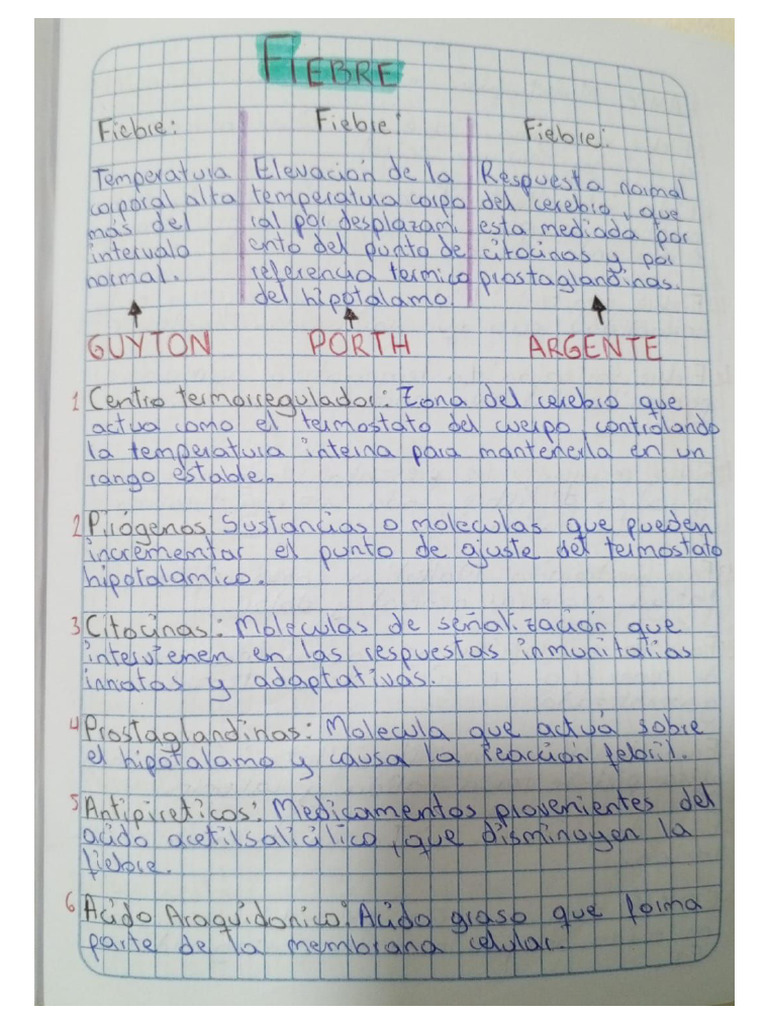 FIEBRE
Fiebre:
Temperatura
corporal alta
más del
intervalo
normal.
GUYTON
Fiebre:
Elevación de la
temperatura corpo
ral por desplazami
ento del punto de
referencia termico
del hipotalamo.
PORTH
Fiebre:
Respuesta normal
del cerebro, que
esta mediada por
citocinas y por
prostaglandinas.
ARGENTE
1 Centro termorregulador: Zona del cerebro que
actua como el termostato del cuerpo controlando
la temperatura interna para mantenerla en un
rango estable.
2 Pirógenos: Sustancias o moleculas que pueden
incrementar el punto de ajuste del termostato
hipotalamico.
3 Citocinas: Moleculas de señalización que
intervienen en las respuestas inmunitarias
innatas y adaptativas.
4 Prostaglandinas: Molecula que actuá sobre
el hipotalamo y causa la reacción febril.
5 Antipireticos: Medicamentos provenientes del
acido acetilsalicilico, que disminuyen la
fiebre.
6 Acido Araquidonico: Acido graso que forma
parte de la membrana celular.